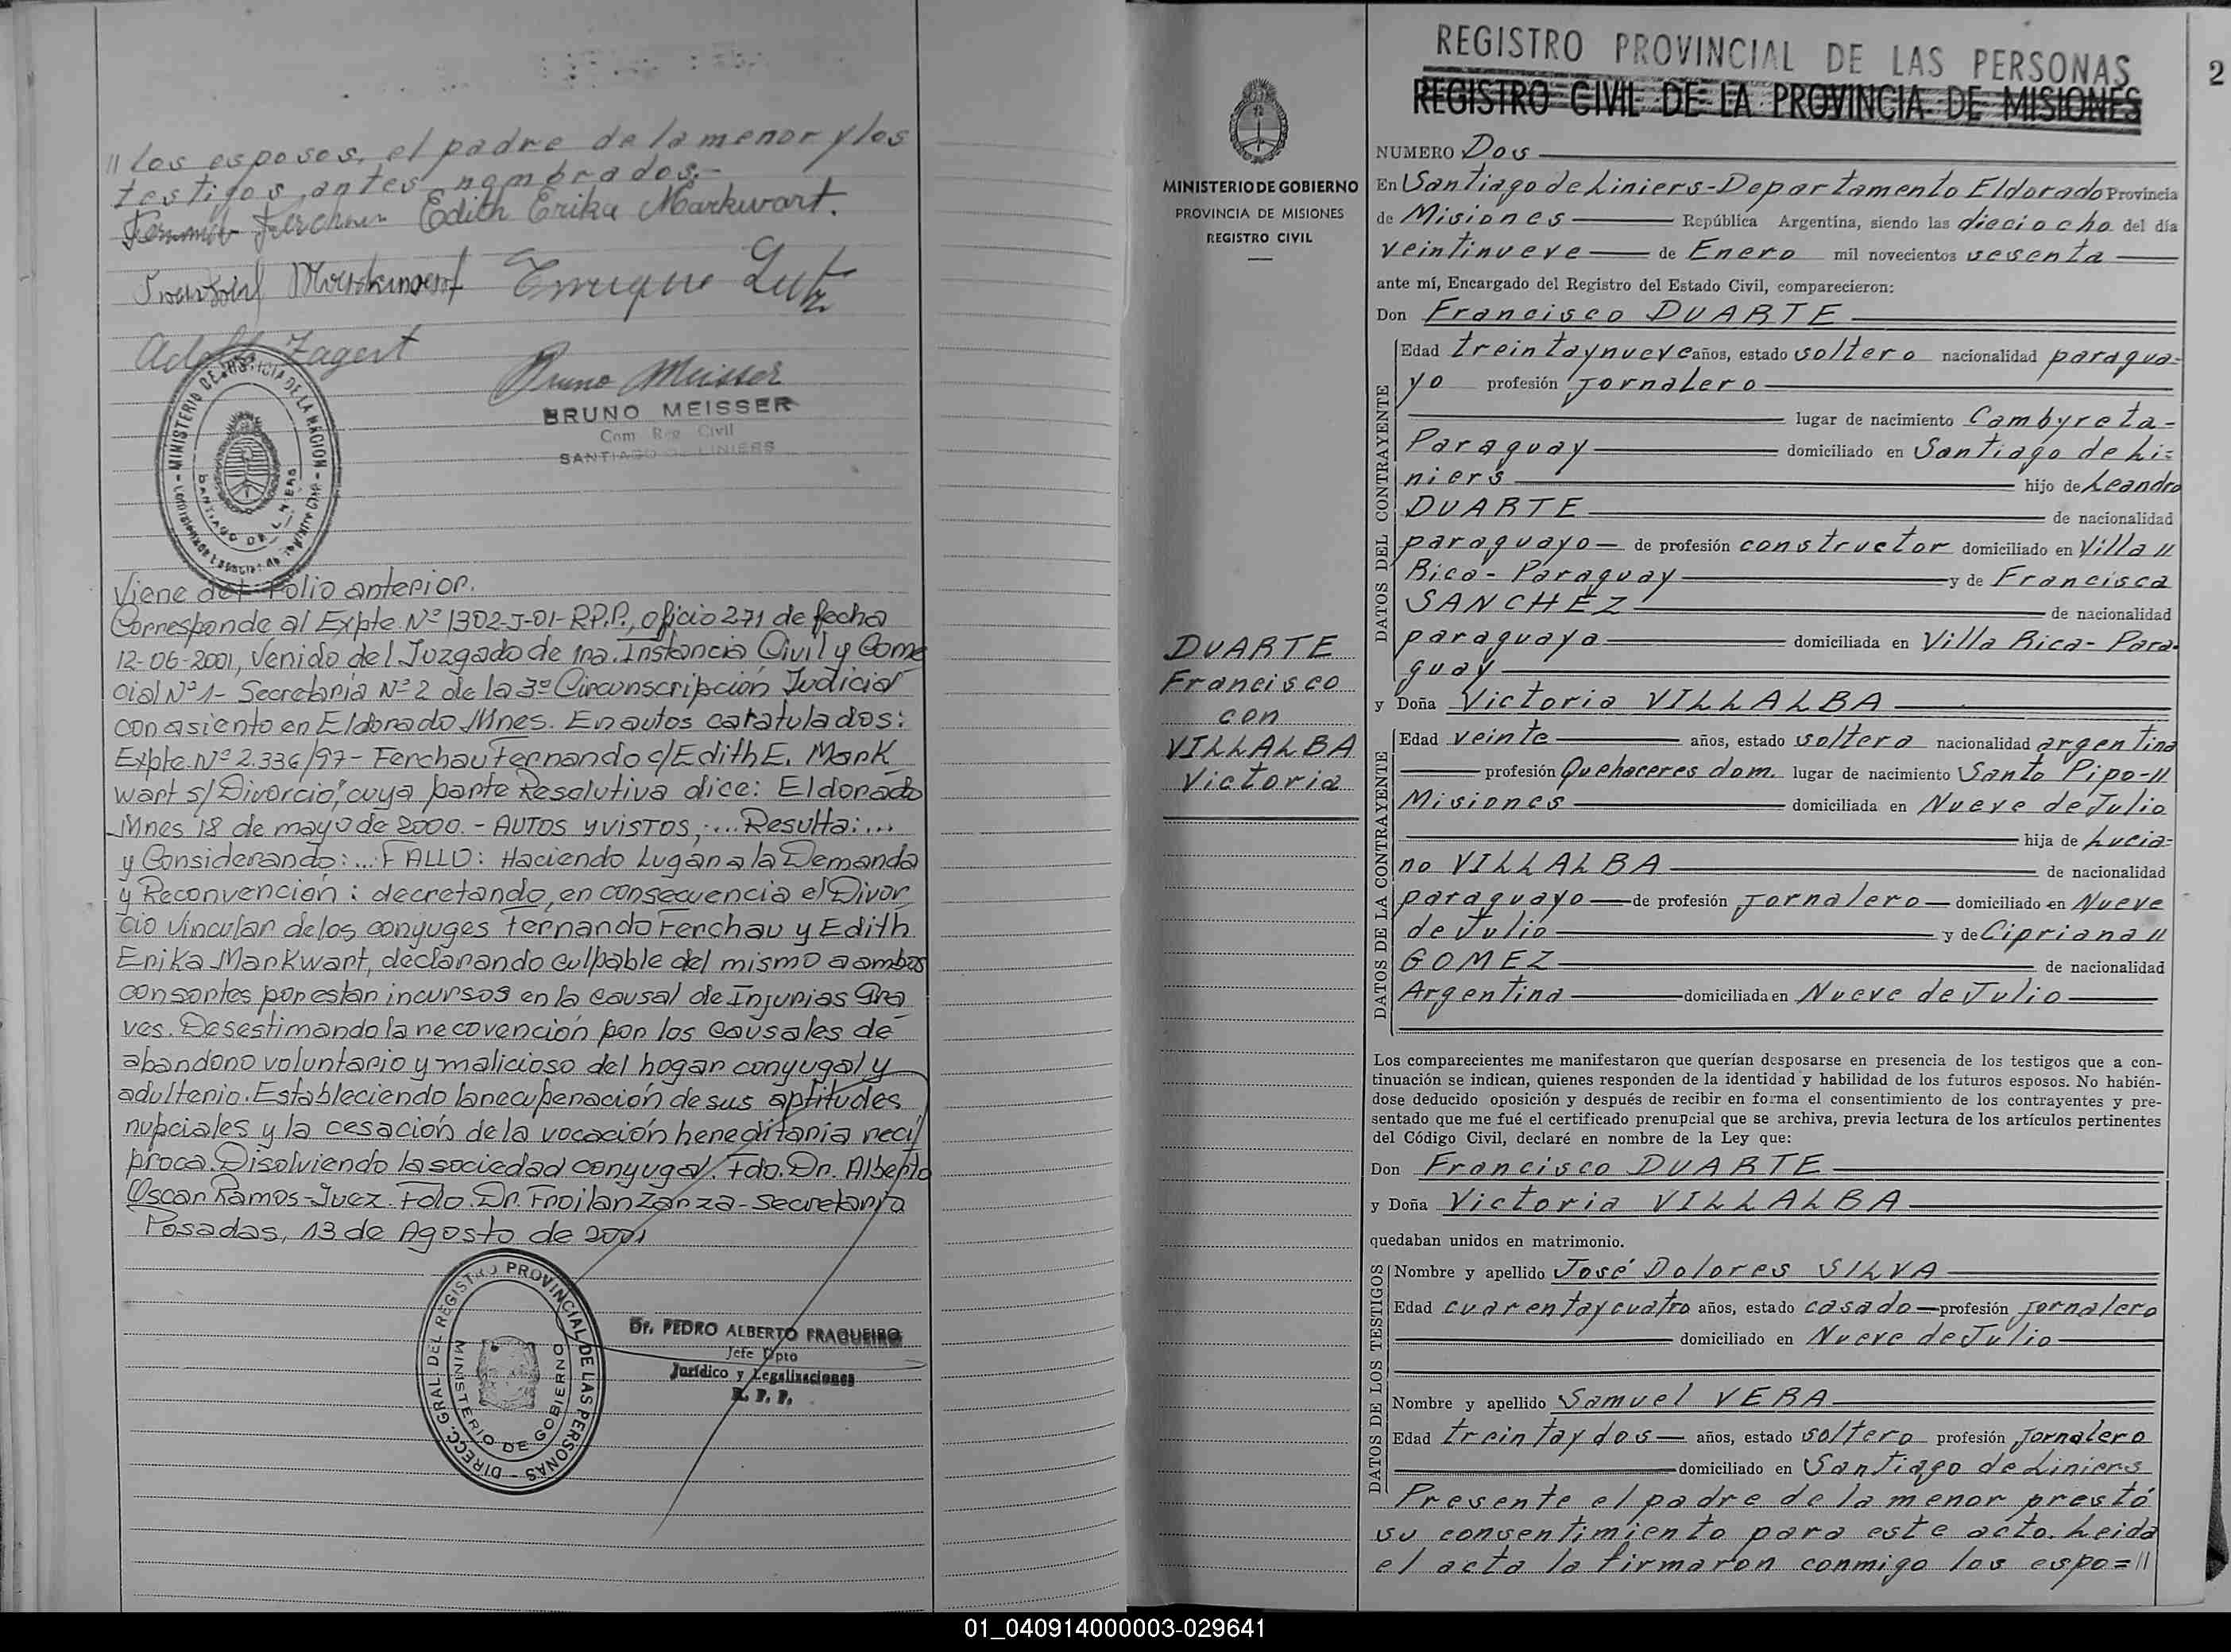 // los esposos, el padre de la menor y los
testigos antes nombrados.-
Edith Erika Markwart.
Markwart Enrique Lutz
Adolf Zagert
Bruno Meisser
BRUNO MEISSER
Com Reg Civil
SANTIAGO DE LINIERS
MINISTERIO DE JUSTICIA DE LA NACION
SANTIAGO DE LINIERS
Viene del Folio anterior.
Corresponde al Expte Nº 1302-J-01-R.P.P., oficio 271 de fecha
12-06-2001, venido del Juzgado de 1ra. Instancia Civil y Comer
cial Nº 1- Secretaría Nº 2 de la 3º Circunscripción Judicial
con asiento en Eldorado Mnes. En autos caratulados:
Expte. Nº 2.336/97- Ferchau Fernando c/Edith E. Mark
wart s/ Divorcio", cuya parte Resolutiva dice: Eldorado
Mnes 18 de mayo de 2000.- AUTOS y VISTOS, ... Resulta: ...
y Considerando: ... FALLO: Haciendo Lugar a la Demanda
y Reconvención: decretando, en consecuencia el Divor
cio Vincular de los conyuges Fernando Ferchau y Edith
Erika Markwart, declarando culpable del mismo a ambos
consortes por estar incursos en la causal de Injurias Gra
ves. Desestimando la recovención por los causales de
abandono voluntario y malicioso del hogar conyugal y
adulterio. Estableciendo la recuperación de sus aptitudes
nupciales y la cesación de la vocación hereditaria recí
proca. Disolviendo la sociedad conyugal. Fdo. Dr. Alberto
Oscar Ramos-Juez. Fdo. Dr. Froilan Zarza-Secretaría
Posadas, 13 de Agosto de 2001
DIRECC. GRAL DEL REGISTRO PROVINCIAL DE LAS PERSONAS
MINISTERIO DE GOBIERNO
Dr. PEDRO ALBERTO FRAQUEIRO
Jefe Dpto
Jurídico y Legalizaciones
R. P. P.
REGISTRO PROVINCIAL DE LAS PERSONAS
2
REGISTRO CIVIL DE LA PROVINCIA DE MISIONES
MINISTERIO DE GOBIERNO
PROVINCIA DE MISIONES
REGISTRO CIVIL
DUARTE
Francisco
con
VILLALBA
Victoria
NUMERO Dos
En Santiago de Liniers-Departamento Eldorado Provincia
de Misiones República Argentina, siendo las dieciocho del día
veintinueve de Enero mil novecientos sesenta
ante mí, Encargado del Registro del Estado Civil, comparecieron:
Don Francisco DUARTE
DATOS DEL CONTRAYENTE
Edad treintaynueve años, estado soltero nacionalidad paragua=
yo profesión jornalero
lugar de nacimiento Cambyreta-
Paraguay domiciliado en Santiago de Li=
niers hijo de Leandro
DUARTE de nacionalidad
paraguayo de profesión constructor domiciliado en Villa //
Rica- Paraguay y de Francisca
SANCHEZ de nacionalidad
paraguaya domiciliada en Villa Rica- Para-
guay
y Doña Victoria VILLALBA
DATOS DE LA CONTRAYENTE
Edad veinte años, estado soltera nacionalidad argentina
profesión Quehaceres dom. lugar de nacimiento Santo Pipo-//
Misiones domiciliada en Nueve de Julio
hija de Lucia=
no VILLALBA de nacionalidad
paraguayo de profesión jornalero domiciliado en Nueve
de Julio y de Cipriana //
GOMEZ de nacionalidad
Argentina domiciliada en Nueve de Julio
Los comparecientes me manifestaron que querían desposarse en presencia de los testigos que a con-
tinuación se indican, quienes responden de la identidad y habilidad de los futuros esposos. No habién-
dose deducido oposición y después de recibir en forma el consentimiento de los contrayentes y pre-
sentado que me fué el certificado prenupcial que se archiva, previa lectura de los artículos pertinentes
del Código Civil, declaré en nombre de la Ley que:
Don Francisco DUARTE
y Doña Victoria VILLALBA
quedaban unidos en matrimonio.
DATOS DE LOS TESTIGOS
Nombre y apellido José Dolores SILVA
Edad cuarentaycuatro años, estado casado profesión jornalero
domiciliado en Nueve de Julio
Nombre y apellido Samuel VERA
Edad treintaydos años, estado soltero profesión jornalero
domiciliado en Santiago de Liniers
Presente el padre de la menor prestó
su consentimiento para este acto. Leida
el acta la firmaron conmigo los espo=//
01_040914000003-029641